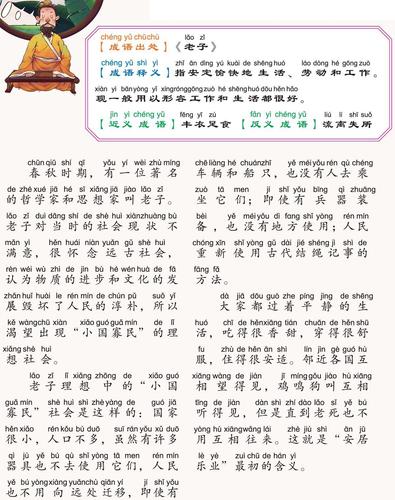 chéng yǔ chū chù lǎo zǐ
【成语出处】《老子》
chéng yǔ shì yì zhǐ ān dìng yú kuài de shēng huó láo dòng hé gōng zuò
【成语释义】指安定愉快地生活、劳动和工作。
xiàn yì bān yòng yǐ xíng róng gōng zuò hé shēng huó dōu hěn hǎo
现一般用以形容工作和生活都很好。
jìn yì chéng yǔ fēng yī zú shí fǎn yì chéng yǔ liú lí shī suǒ
【近义成语】丰衣足食【反义成语】流离失所
chūn qiū shí qī yǒu yí wèi zhù míng
春秋时期，有一位著名
de zhé xué jiā hé sī xiǎng jiā jiào lǎo zǐ
的哲学家和思想家叫老子。
lǎo zǐ duì dāng shí de shè huì xiàn zhuàng bù
老子对当时的社会现状不
mǎn yì hěn huái niàn yuǎn gǔ shè huì
满意，很怀念远古社会，
rèn wéi wù zhì de jìn bù hé wén huà de fā
认为物质的进步和文化的发
zhǎn huǐ huài le rén mín de chún pǔ suǒ yǐ
展毁坏了人民的淳朴，所以
kě wàng chū xiàn xiǎo guó guǎ mín de lǐ
渴望出现“小国寡民”的理
xiǎng shè huì
想社会。
lǎo zǐ lǐ xiǎng zhōng de xiǎo guó
老子理想中的“小国
guǎ mín shè huì shì zhè yàng de guó jiā
寡民”社会是这样的：国家
hěn xiǎo rén kǒu bù duō suī rán yǒu xǔ duō
很小，人口不多，虽然有许多
qì jù yě bú qù shǐ yòng tā men rén mín
器具也不去使用它们，人民
yě bú yòng xiàng yuǎn chù qiān yí jí shǐ yǒu
也不用向远处迁移，即使有
chē liàng hé chuán zhī yě méi yǒu rén qù chéng
车辆和船只，也没有人去乘
zuò tā men jí shǐ yǒu bīng qì zhuāng
坐它们；即使有兵器装
bèi yě méi yǒu dì fang shǐ yòng rén mín
备，也没有地方使用；人民
chóng xīn shǐ yòng gǔ dài jié shéng jì shì de
重新使用古代结绳记事的
fāng fǎ
方法。
dà jiā dōu guò zhe píng jìng de shēng
大家都过着平静的生
huó chī de hěn xiāng tián chuān de hěn shū
活，吃得很香甜，穿得很舒
fu zhù de hěn ān shì lín jìn gè guó hù
服，住得很安适。邻近各国互
xiāng wàng de jiàn jī míng gǒu jiào hù xiāng
相望得见，鸡鸣狗叫互相
tīng de jiàn dàn shì zhí dào lǎo sǐ yě bú
听得见，但是直到老死也不
yòng hù xiāng wǎng lái zhè jiù shì ān jū
用互相往来。这就是“安居
lè yè zuì chū de hán yì
乐业”最初的含义。